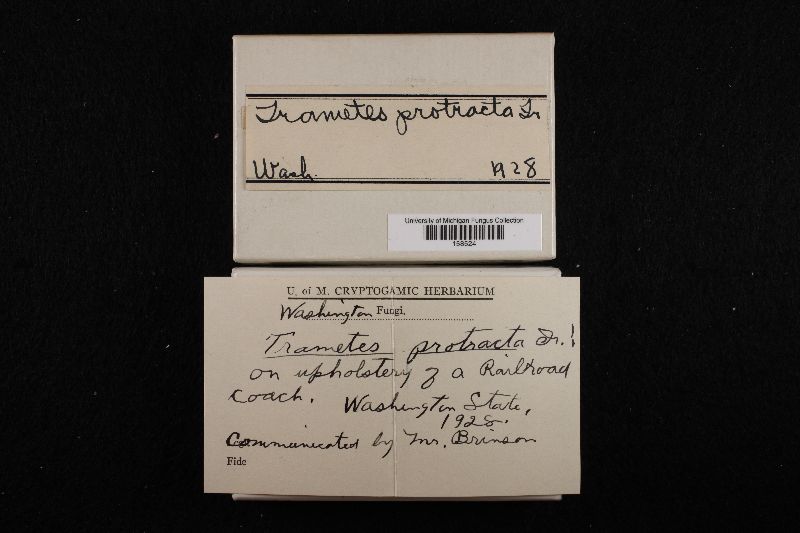 Trametes protracta Fr
Wash. 1928
University of Michigan Fungus Collection
U. of M. CRYPTOGAMIC HERBARIUM
Washington Fungi.
Trametes protracta Fr.!
on upholstery of a Railroad
coach. Washington State,
1928.
Communicated by Mr. Brinson
Fide